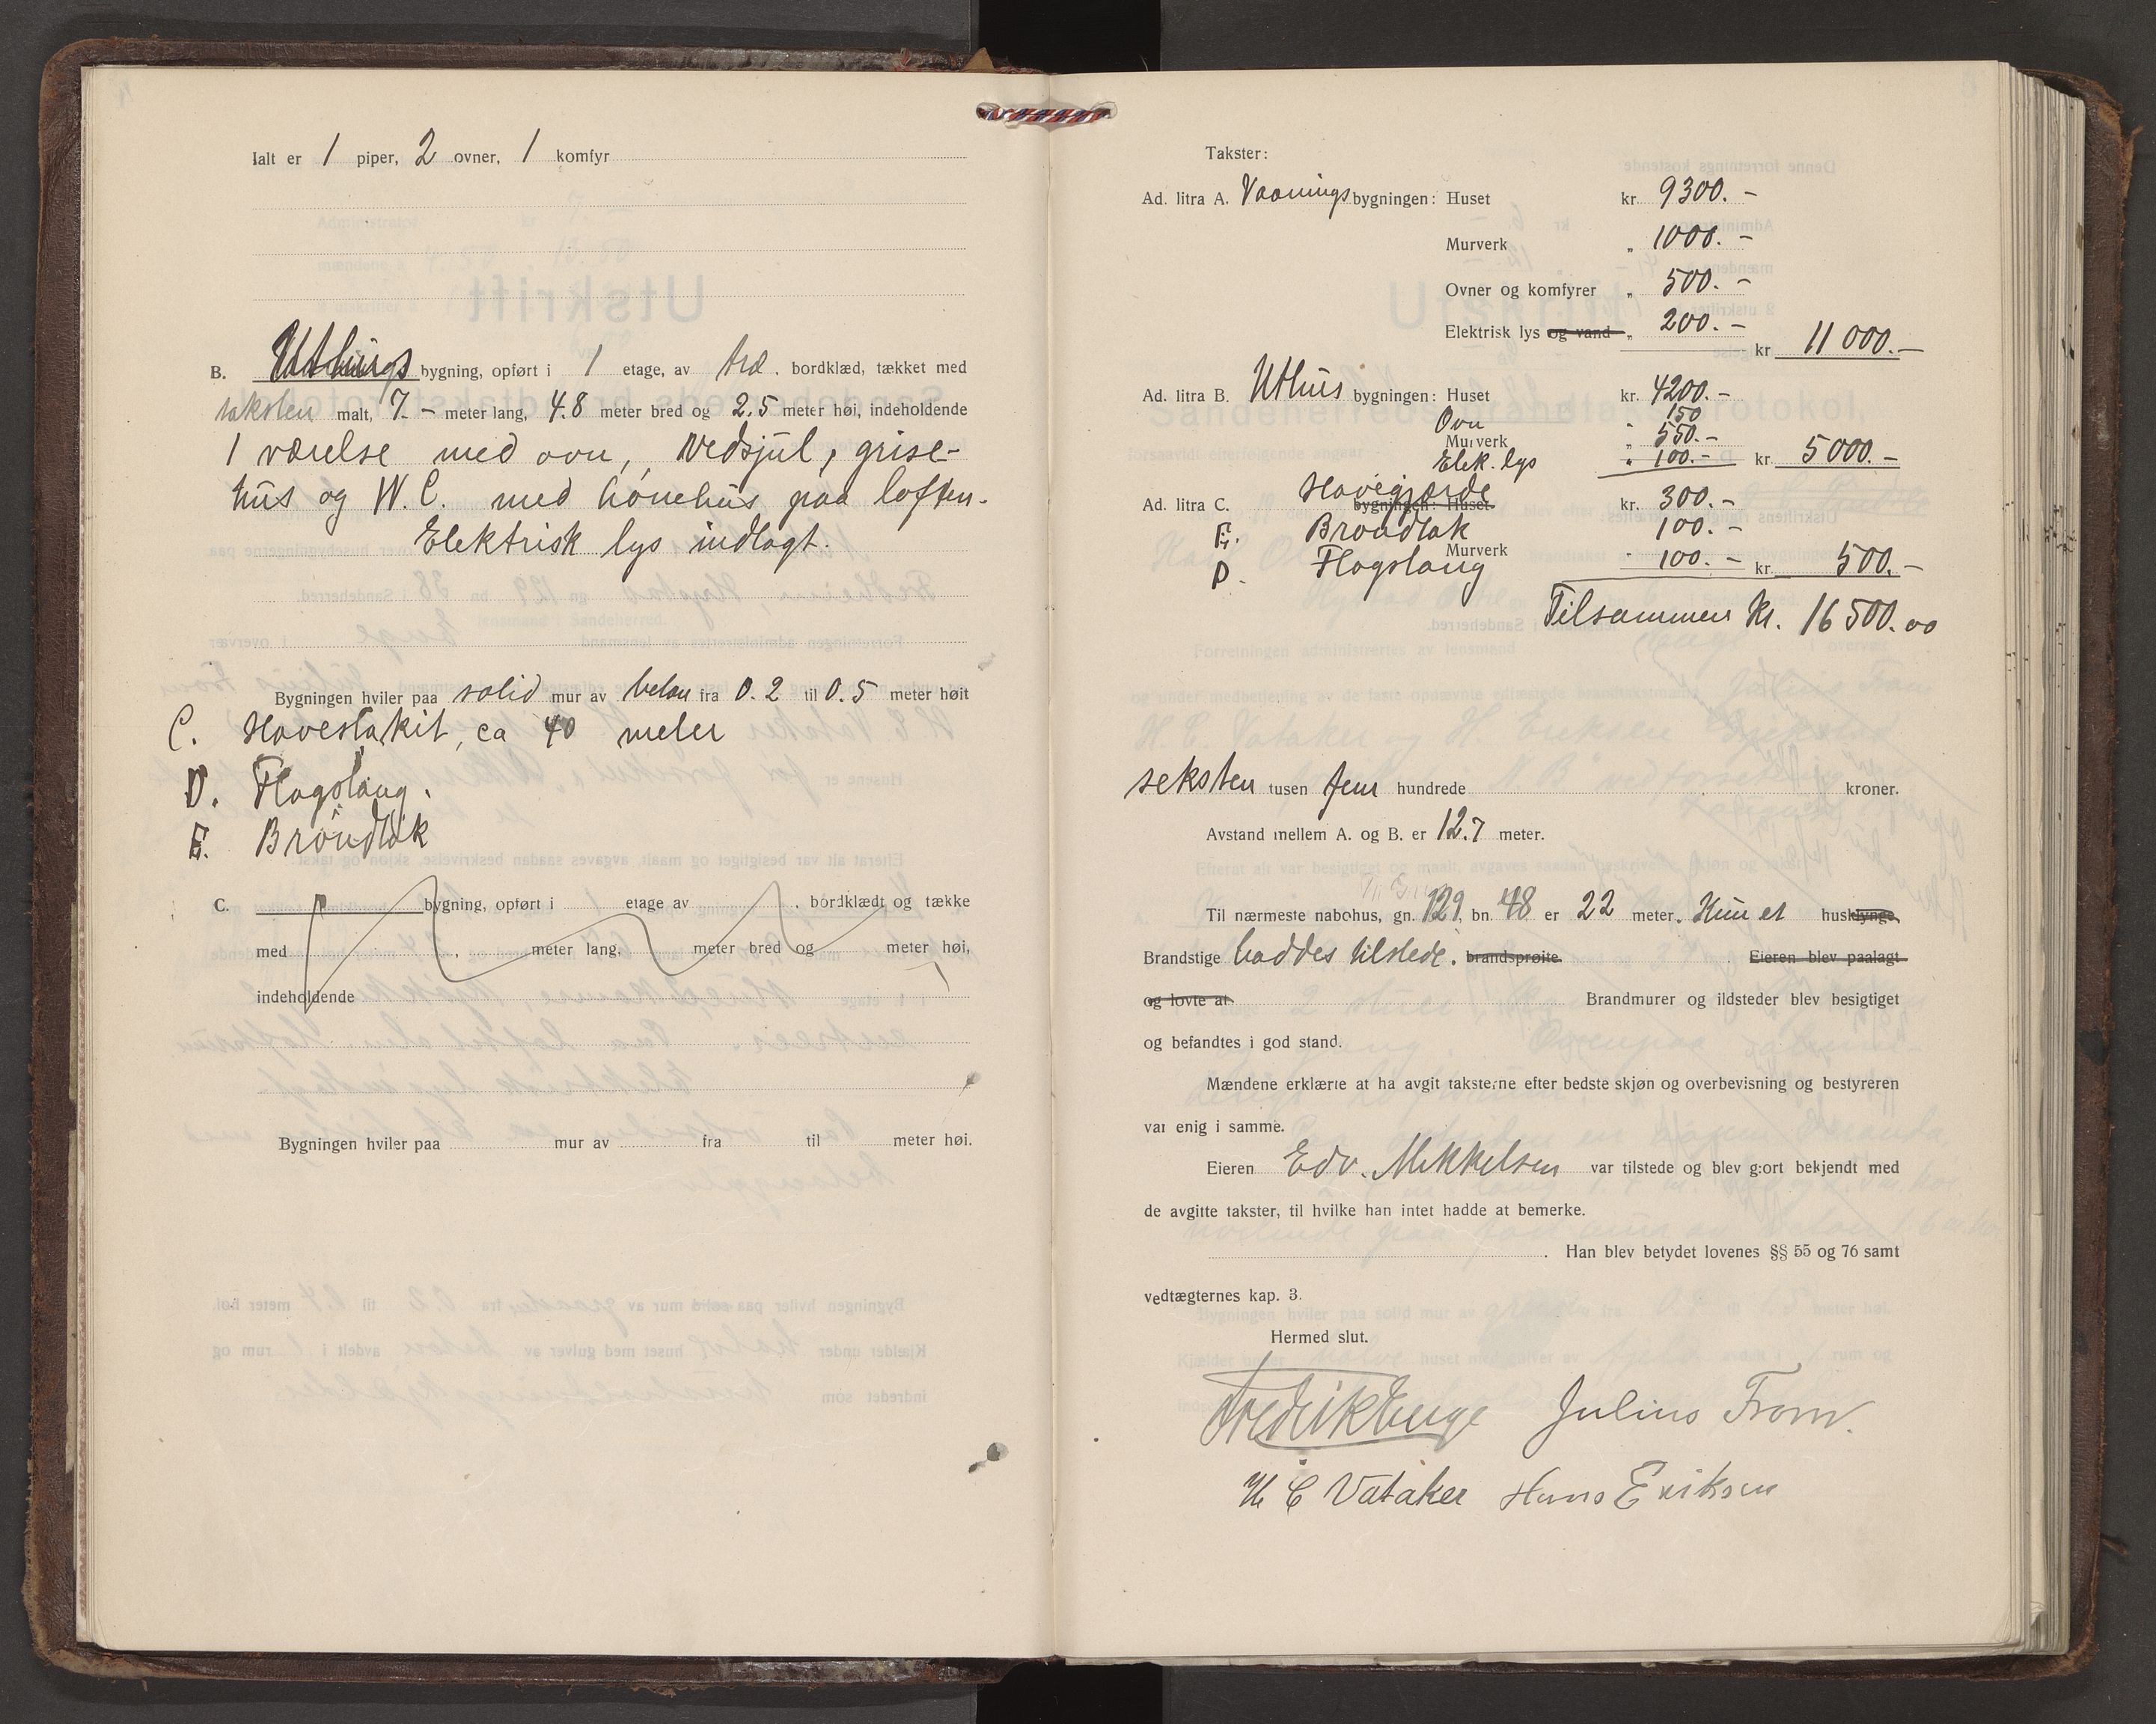 Ialt er 1 piper, 2 ovner, 1 komfyr
B. Uthus bygning, opført i 1 etage, av træ. bordklæd, tækket med
taksten malt, 7.- meter lang, 4.8 meter bred og 2.5 meter høi, indeholdende
1 værelse med ovn, vedsjul, grise-
hus og W.C. med hönehus paa loften.
Elektrisk lys indlagt.
Bygningen hviler paa solid mur av beton fra 0.2 til 0.5 meter høit
C. Havestakit, ca 40 meter
D. Flagstang.
E. Bröndlok
C. bygning, opført i etage av , bordklædt og tække
med . meter lang, meter bred og meter høi,
indeholdende
Bygningen hviler paa mur av fra til meter høi.
Takster:
Ad. litra A. Vaanings bygningen: Huset kr. 9300.-
Murverk " 1000.-
Ovner og komfyrer " 500.-
Elektrisk lys og vand " 200.- kr 11 000.-
Ad. litra B. Uthus bygningen: Huset kr. 4200.-
Ovn " 150
Murverk " 550.-
Elek. lys " 100.- kr. 5000.-
Ad. litra C. Havegjærde bygningen: Huset kr. 300.-
E. Bröndlok 100.-
Murverk
D. Flagstang " 100.- kr. 500.-
Tilsammen kr. 16 500.00
seksten tusen fem hundrede kroner.
Avstand mellem A. og B. er 12.7 meter.
Til nærmeste nabohus, gn. 129, bn. 48 er 22 meter. Kun et husklynge,
Brandstige haddes tilstede. brandsprøite. Eieren blev paalagt
og lovte at Brandmurer og ildsteder blev besigtiget
og befandtes i god stand.
Mændene erklærte at ha avgit taksterne efter bedste skjøn og overbevisning og bestyreren
var enig i samme.
Eieren Edv. Mikkelsen var tilstede og blev gjort bekjendt med
de avgitte takster, til hvilke han intet hadde at bemerke.
. Han blev betydet lovenes §§ 55 og 76 samt
vedtægternes kap. 3.
Hermed slut.
Fredrik Enge Julius From.
H C Vataker Hans Eriksen